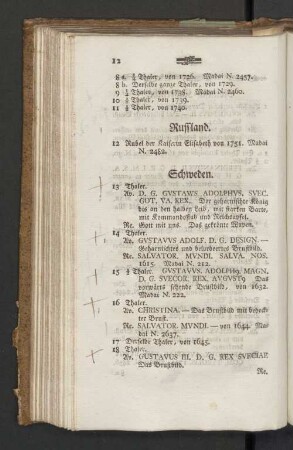 12
8 a. ½ Thaler, von 1726. Madai N. 2457.
8 b. Derselbe ganze Thaler, von 1729.
9 ½ Thaler, von 1738. Madai N. 2460.
10 Thaler, von 1739.
11 Thaler, von 1740.
Russland.
12 Rubel der Kaiserin Elisabeth von 1751. Madai
N. 2482.
Schweden.
13 Thaler.
Av. D. G. GUSTAWS ADOLPHVS, SVEC.
GOT. VA. REX. Der geharnischte König
bis an den halben Leib, mit bloßem Barte,
mit Kommandostab und Reichsapfel.
Re. Gott mit uns. Das gekrönte Wapen.
14 Thaler.
Av. GVSTAVUS ADOLF. D. G. DESIGN. —
Geharnischtes und belorbertes Brustbild.
Re. SALVATOR. MVNDI. SALVA. NOS.
1615. Madai N. 212.
15 Thaler. GUSTAVUS. ADOLPHg. MAGN.
D, G. SVECOR. REX. AVGVST9 Das
vorwärts sehende Brustbild, von 1632.
Madai N. 222.
16 Thaler.
Av. CHRISTINA. — Das Brustbild mit bedeck-
ter Brust.
Re. SALVATOR. MVNDI. — von 1644. Ma-
dai N. 2637.
17 Derselbe Thaler, von 1645.
18 Thaler.
Av. GUSTAVUS III. D. G. REX SVECIAE
Das Brustbild.
Re.